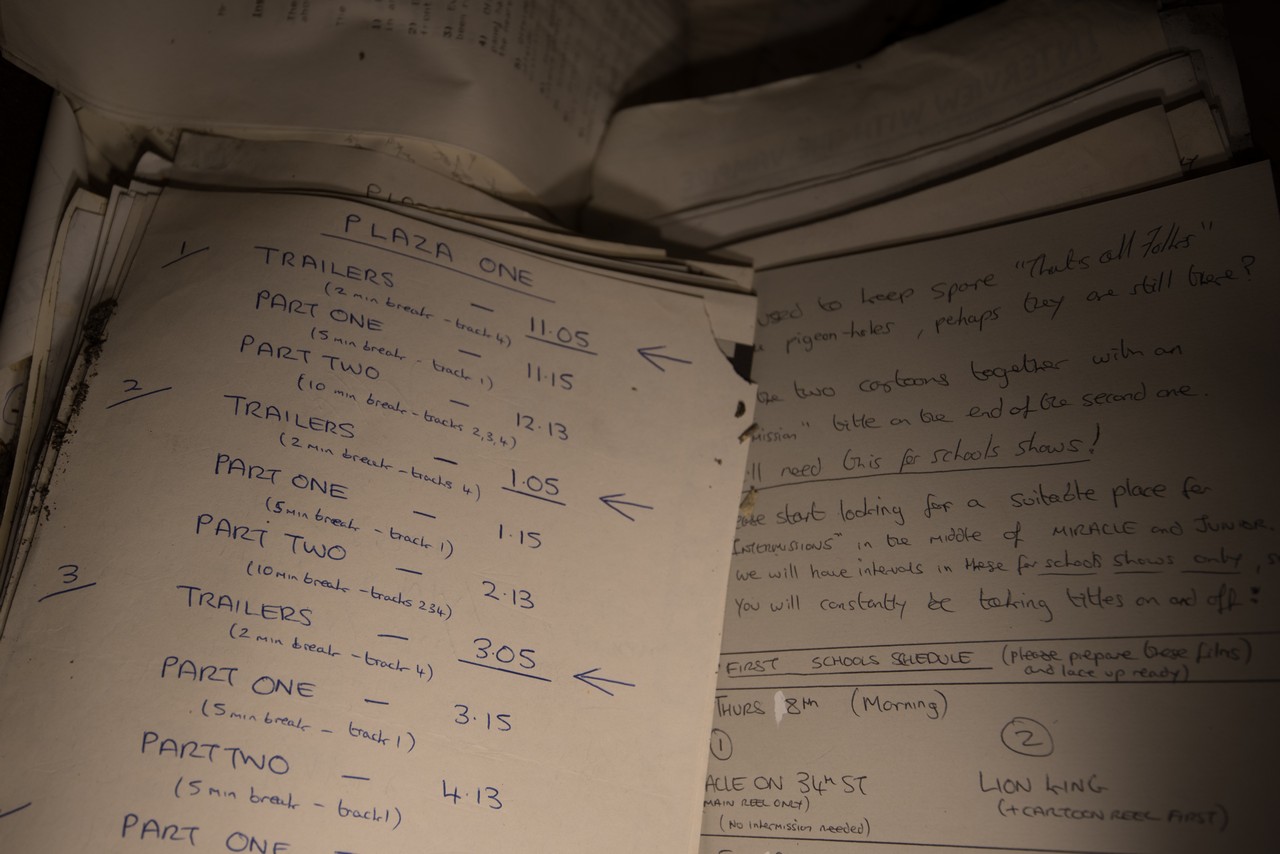 PLAZA ONE
1 TRAILERS — 11.05
(2 min break - track 4)
PART ONE — 11.15
(5 min break - track 1)
PART TWO — 12.13
(10 min break - tracks 2,3,4)
2 TRAILERS — 1.05
(2 min break - tracks 4)
PART ONE — 1.15
(5 min break - track 1)
PART TWO — 2.13
(10 min break - tracks 234)
3 TRAILERS — 3.05
(2 min break - track 4)
PART ONE — 3.15
(5 min break - track 1)
PART TWO — 4.13
(5 min break - track 1)
PART ONE —
used to keep spare "Thats all Folks"
pigeon-holes, pehaps they are still there?
two cartoons together with an
title on the end of the second one.
need this for schools shows!
start looking for a suitable place for
in the middle of MIRACLE and JUNIOR.
we will have intervals in these for schools shows only,
You will constantly be taking titles on and off!
FIRST SCHOOLS SHEDULE (please prepare these films)
and lace up ready)
THURS 8th (Morning)
1 2
ACLE ON 34th ST LION KING
MAIN REEL ONLY) (+ CARTOON REEL FIRST)
(No intermission needed)
INTERVIEW WITH